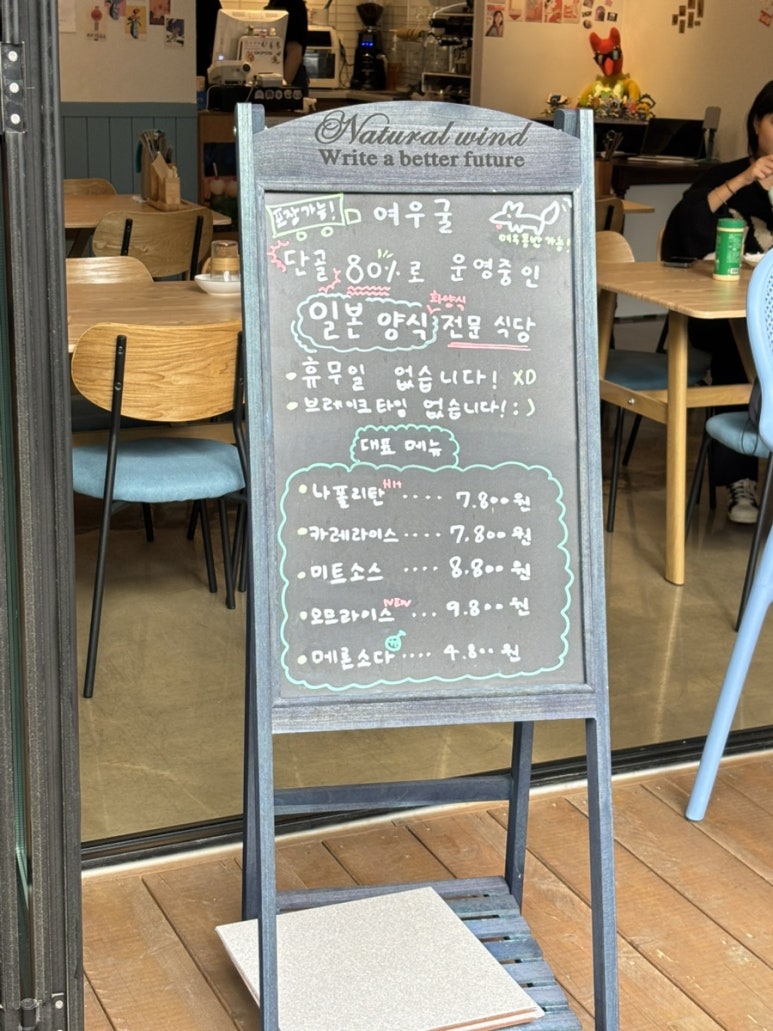 Natural wind
Write a better future
포장가능! 여우굴
여우동반가능!
단골 80%로 운영중인
화양식
일본 양식 전문 식당
휴무일 없습니다! XD
브레이크타임 없습니다! :)
대표 메뉴
나폴리탄 Hit .... 7.800원
카레라이스 .... 7.800원
미트소스 .... 8.800원
오므라이스 NEW ... 9.800원
메론소다 .... 4.800원